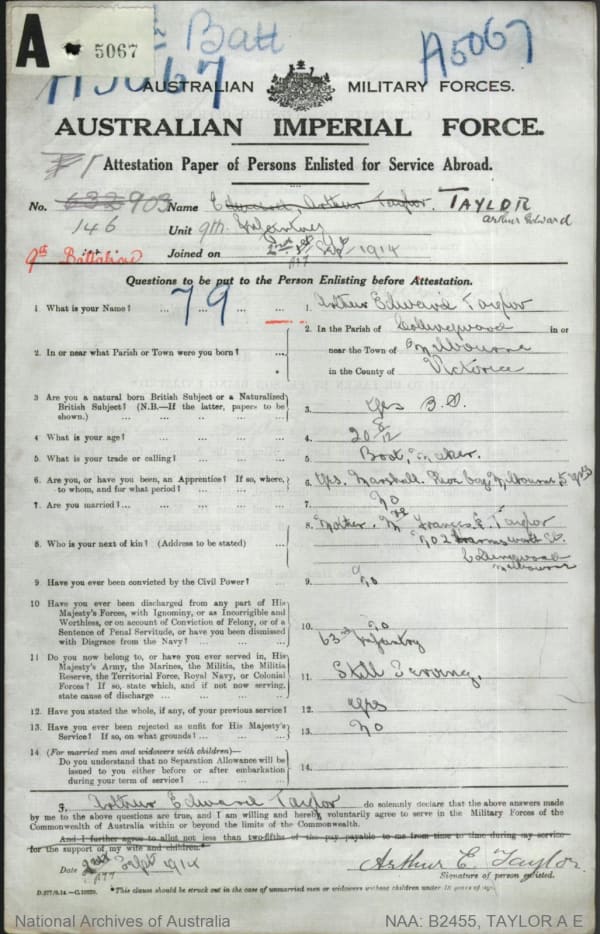 A
5067
Batt
A5067
A5067
AUSTRALIAN MILITARY FORCES.
AUSTRALIAN IMPERIAL FORCE.
Attestation Paper of Persons Enlisted for Service Abroad.
No. 632 903 Name Edward, Arthur Taylor. TAYLOR
Arthur Edward
146 Unit 9th Infantry
9th Battalion Joined on Sept 1914
Questions to be put to the Person Enlisting before Attestation.
79
1. What is your Name? ... ... ... ... 1. Arthur Edward Taylor
2. In or near what Parish or Town were you born? ... 2. In the Parish of Collingwood in or
near the Town of Melbourne
in the County of Victoria
3 Are you a natural born British Subject or a Naturalized
British Subject? (N.B.—If the latter, papers to be
shown.) ... ... ... ... ... 3. Yes B.S.
4 What is your age? ... ... ... ... 4. 20 8/12
5. What is your trade or calling? ... ... ... 5. Boot Maker.
6. Are you, or have you been, an Apprentice? If so, where,
to whom, and for what period? ... ... ... 6 Yes. Marshall Shoe Coy, Melbourne, 5 yrs
7. Are you married? ... ... ... ... 7. No
8. Who is your next of kin? (Address to be stated) ... 8. Mother. Mrs Frances E. Taylor
No 2 St.
Collingwood
Melbourne
9 Have you ever been convicted by the Civil Power? ... 9. no
10 Have you ever been discharged from any part of His
Majesty's Forces, with Ignominy, or as Incorrigible and
Worthless, or on account of Conviction of Felony, or of a
Sentence of Penal Servitude, or have you been dismissed
with Disgrace from the Navy? ... ... ... 10. no
11 Do you now belong to, or have you ever served in, His
Majesty's Army, the Marines, the Militia, the Militia
Reserve, the Territorial Force, Royal Navy, or Colonial
Forces? If so, state which, and if not now serving,
state cause of discharge ... ... ... 63rd Infantry
11 Still Serving.
12. Have you stated the whole, if any, of your previous service? 12. Yes
13. Have you ever been rejected as unfit for His Majesty's
Service? If so, on what grounds? ... ... ... 13. No
14 (For married men and widowers with children)—
Do you understand that no Separation Allowance will be
issued to you either before or after embarkation
during your term of service? ... ... ... 14.
I, Arthur Edward Taylor do solemnly declare that the above answers made
by me to the above questions are true, and I am willing and hereby voluntarily agree to serve in the Military Forces of the
Commonwealth of Australia within or beyond the limits of the Commonwealth.
And I further agree to allot not less than two-fifths of the pay payable to me from time to time during my service
for the support of my wife and children*
Date Sept 1914 Arthur E. Taylor
Signature of person enlisted.
*This clause should be struck out in the case of unmarried men or widowers without children under 18 years of age.
National Archives of Australia NAA: B2455, TAYLOR A E